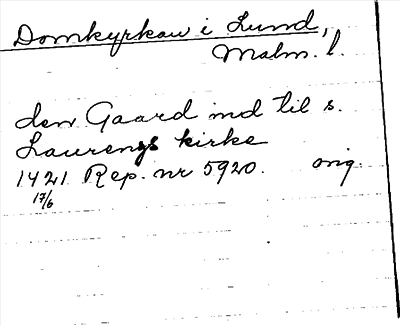 Domkyrkan i Lund,
Malm. l.
den Gaard ind til s.
Laurenss kirke
1421 Rep. nr 5920. orig.
17/6